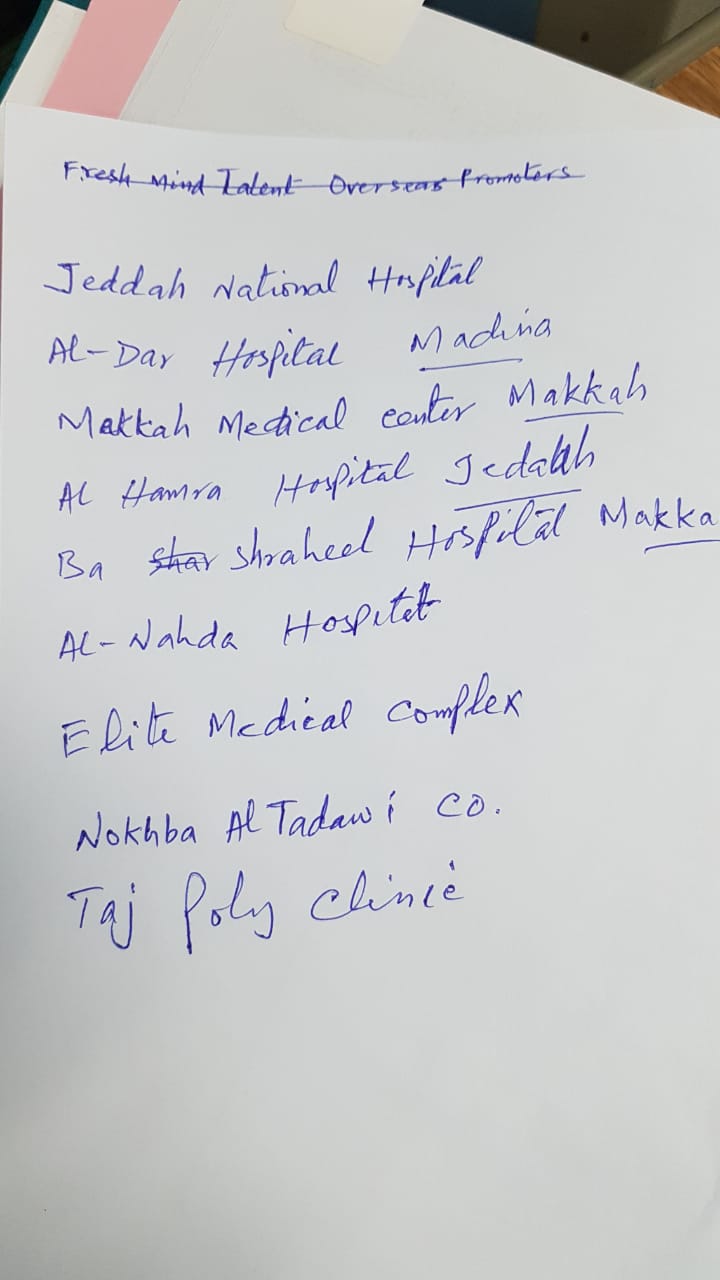 Fresh Mind Talent Overseas Promoters
Jeddah National Hospital
Al-Dar Hospital Madina
Makkah Medical center Makkah
Al Hamra Hospital Jedah
Ba shar Shraheel Hospital Makka
Al-Nahda Hospital
Elite Medical Complex
Nokhba Al Tadawi co.
Taj Poly clinic